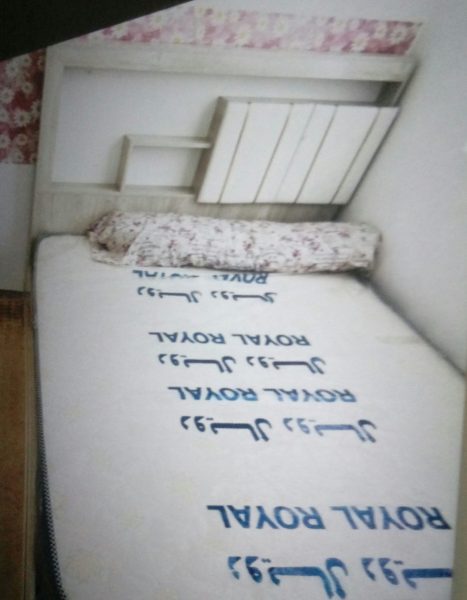 رويال رويال
ROYAL ROYAL
رويال رويال
ROYAL ROYAL
رويال رويال
ROYAL ROYAL
رويال رويال
ROYAL ROYAL